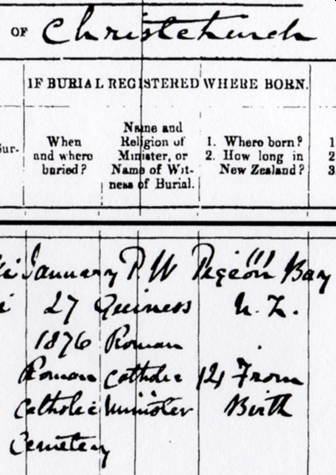 OF Christchurch
IF BURIAL REGISTERED WHERE BORN.
When and where buried?
Name and Religion of Minister, or Name of Wit- ness of Burial.
1. Where born? 2. How long in New Zealand?
January P. W Pigeon Bay
27 Guiness N. Z.
1876 Roman
Roman Catholic 12½ From
Catholic Minister Birth
Cemetery